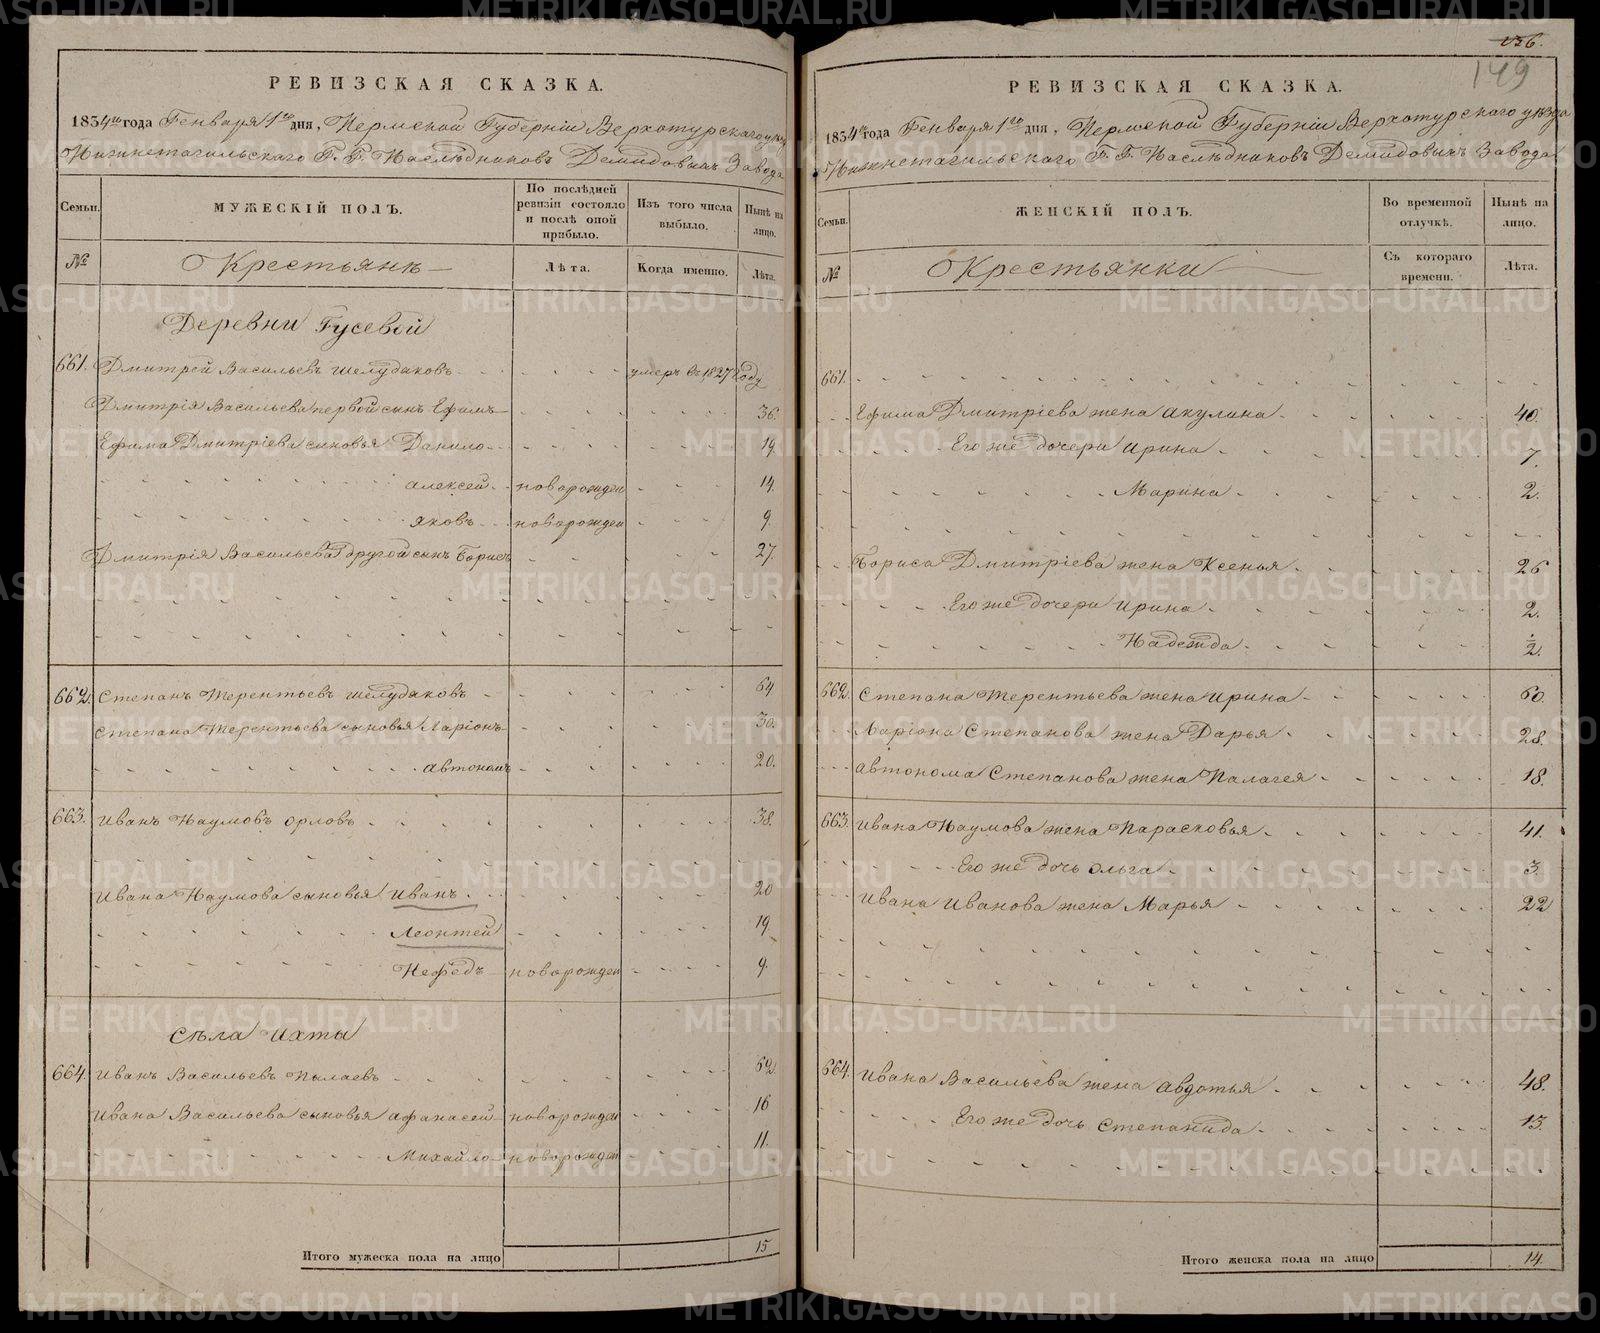 РЕВИЗСКАЯ СКАЗКА.
1834го года Генваря 1го дня, Пермской Губерніи Верхотурскаго уѣзда
Нижнетагильскаго Г. Г. Наслѣдниковъ Демидовыхъ Завода
Семьи.
МУЖЕСКІЙ ПОЛЪ.
По послѣдней ревизіи состояло и послѣ оной прибыло.
Изъ того числа выбыло.
Нынѣ на лицо.
№
Крестьянѣ
Лѣта.
Когда именно.
Лѣта.
Деревни Гусевой
661. Дмитрей Васильевъ Шелудяковъ умеръ въ 1827 году
Дмитрія Васильева первой сынъ Ефимъ 36.
Ефима Дмитріева сыновья Данило 19.
Алексей новорожден 14.
Яковъ новорожден 9.
Дмитрія Васильева другой сынъ Борисъ 27.
662. Степанъ Терентьевъ Шелудяковъ 64
Степана Терентьева сыновья Ларіонъ 30.
Автономъ 20.
663. Иванъ Наумовъ Орловъ 38.
Ивана Наумова сыновья Иванъ 20
Леонтей 19
Нефедъ новорожден 9.
Села Ихты
664. Иванъ Васильевъ Палаевъ 62.
Ивана Васильева сыновья Афанасей новорожден 16
Михайло новорожден 11.
Итого мужеска пола на лицо 15
156.
149
РЕВИЗСКАЯ СКАЗКА.
1834го года Генваря 1го дня, Пермской Губерніи Верхотурскаго уѣзда
Нижнетагильскаго Г. Г. Наслѣдниковъ Демидовыхъ Завода
Семьи.
ЖЕНСКІЙ ПОЛЪ.
Во временной отлучкѣ.
Нынѣ на лицо.
№
Крестьянки
Съ котораго времени.
Лѣта.
661.
Ефима Дмитріева жена Акулина 40.
Его же дочери Ирина 7.
Марина 2.
Бориса Дмитріева жена Ксенья 26
Его же дочери Ирина 2.
Надежда ½.
662. Степана Терентьева жена Ирина 60.
Ларіона Степанова жена Дарья 28.
Автонома Степанова жена Палагея 18.
663. Ивана Наумова жена Парасковья 41.
Его же дочь Ольга 3.
Ивана Иванова жена Марья 22
664. Ивана Васильева жена Авдотья 48.
Его же дочь Степанида 13.
Итого женска пола на лицо 14.
METRIKI.GASO-URAL.RU